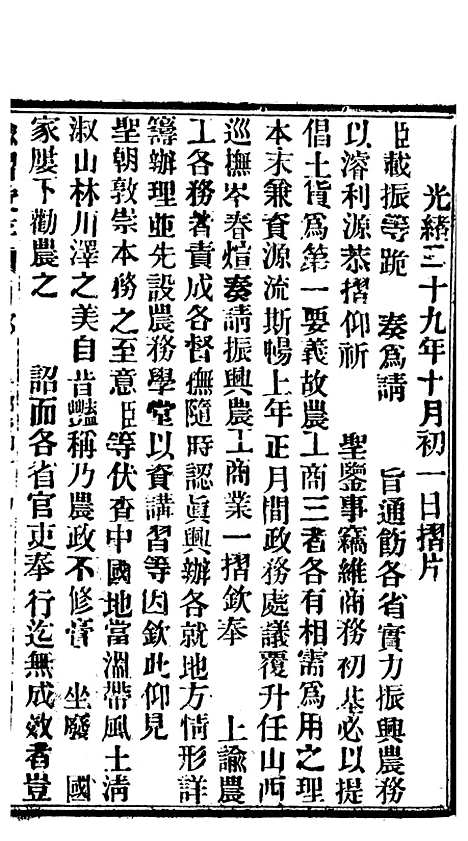 光緒二十九年十月初一日摺片
臣載振等跪　奏爲請　旨通飭各省實力振興農務
以濬利源恭摺仰祈　聖鑒事竊維商務初基必以提
倡土貨爲第一要義故農工商三者各有相需爲用之理
本末兼資源流斯暢上年正月間政務處議覆升任山西
巡撫岑春煊奏請振興農工商業一摺欽奉　上諭農
工各務著責成各督撫隨時認眞興辦各就地方情形詳
籌辦理並先設農務學堂以資講習等因欽此仰見
聖朝敦崇本務之至意臣等伏查中國地當溫帶風土淸
淑山林川澤之美自昔豔稱乃農政不修　坐廢　國
家屢下勸農之　詔而各省官吏奉行迄無成效者豈